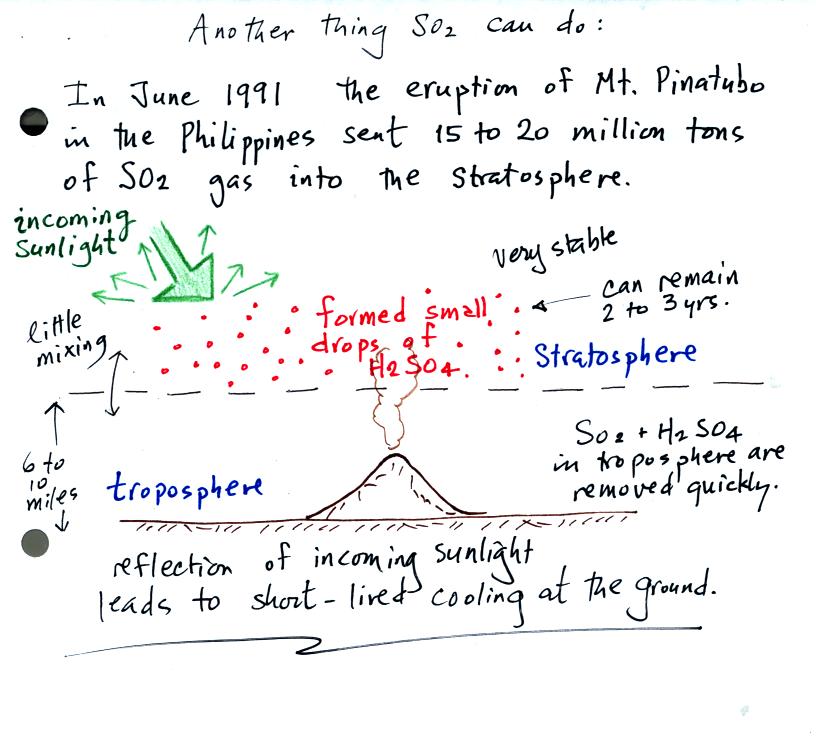 Another thing SO2 can do:
In June 1991 the eruption of Mt. Pinatubo
in the Philippines sent 15 to 20 million tons
of SO2 gas into the stratosphere.
incoming
sunlight
very stable
can remain
2 to 3 yrs.
little
mixing
formed small
drops of
H2SO4.
Stratosphere
6 to
10
miles
troposphere
SO2 + H2SO4
in troposphere are
removed quickly.
reflection of incoming sunlight
leads to short-lived cooling at the ground.